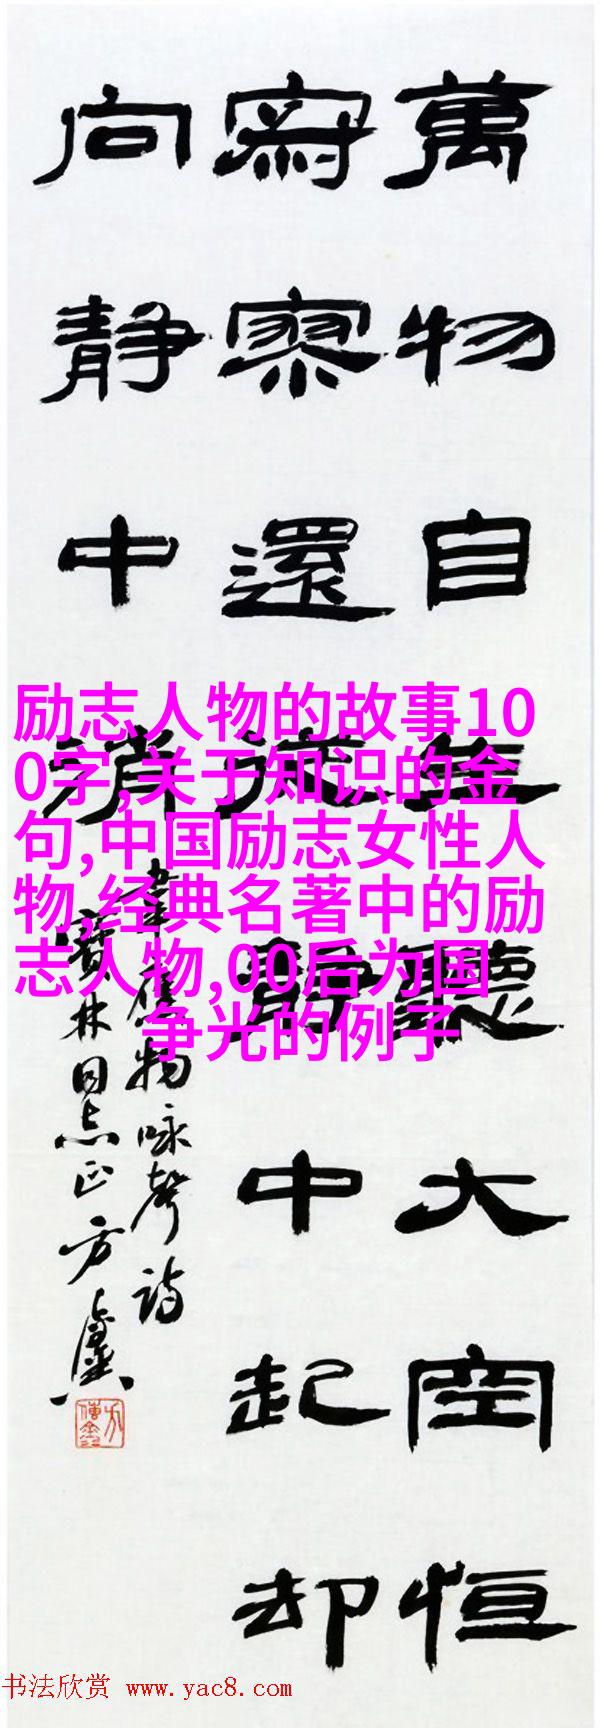 萬物自生聽大空恒
寂寥還從静中起却
向静中消
韋應物詠聲詩
寶林同志正方
励志人物的故事10
0字,关于知识的金
句,中国励志女性人
物,经典名著中的励
志人物,00后为国
争光的例子
书法欣赏 www.yac8.com